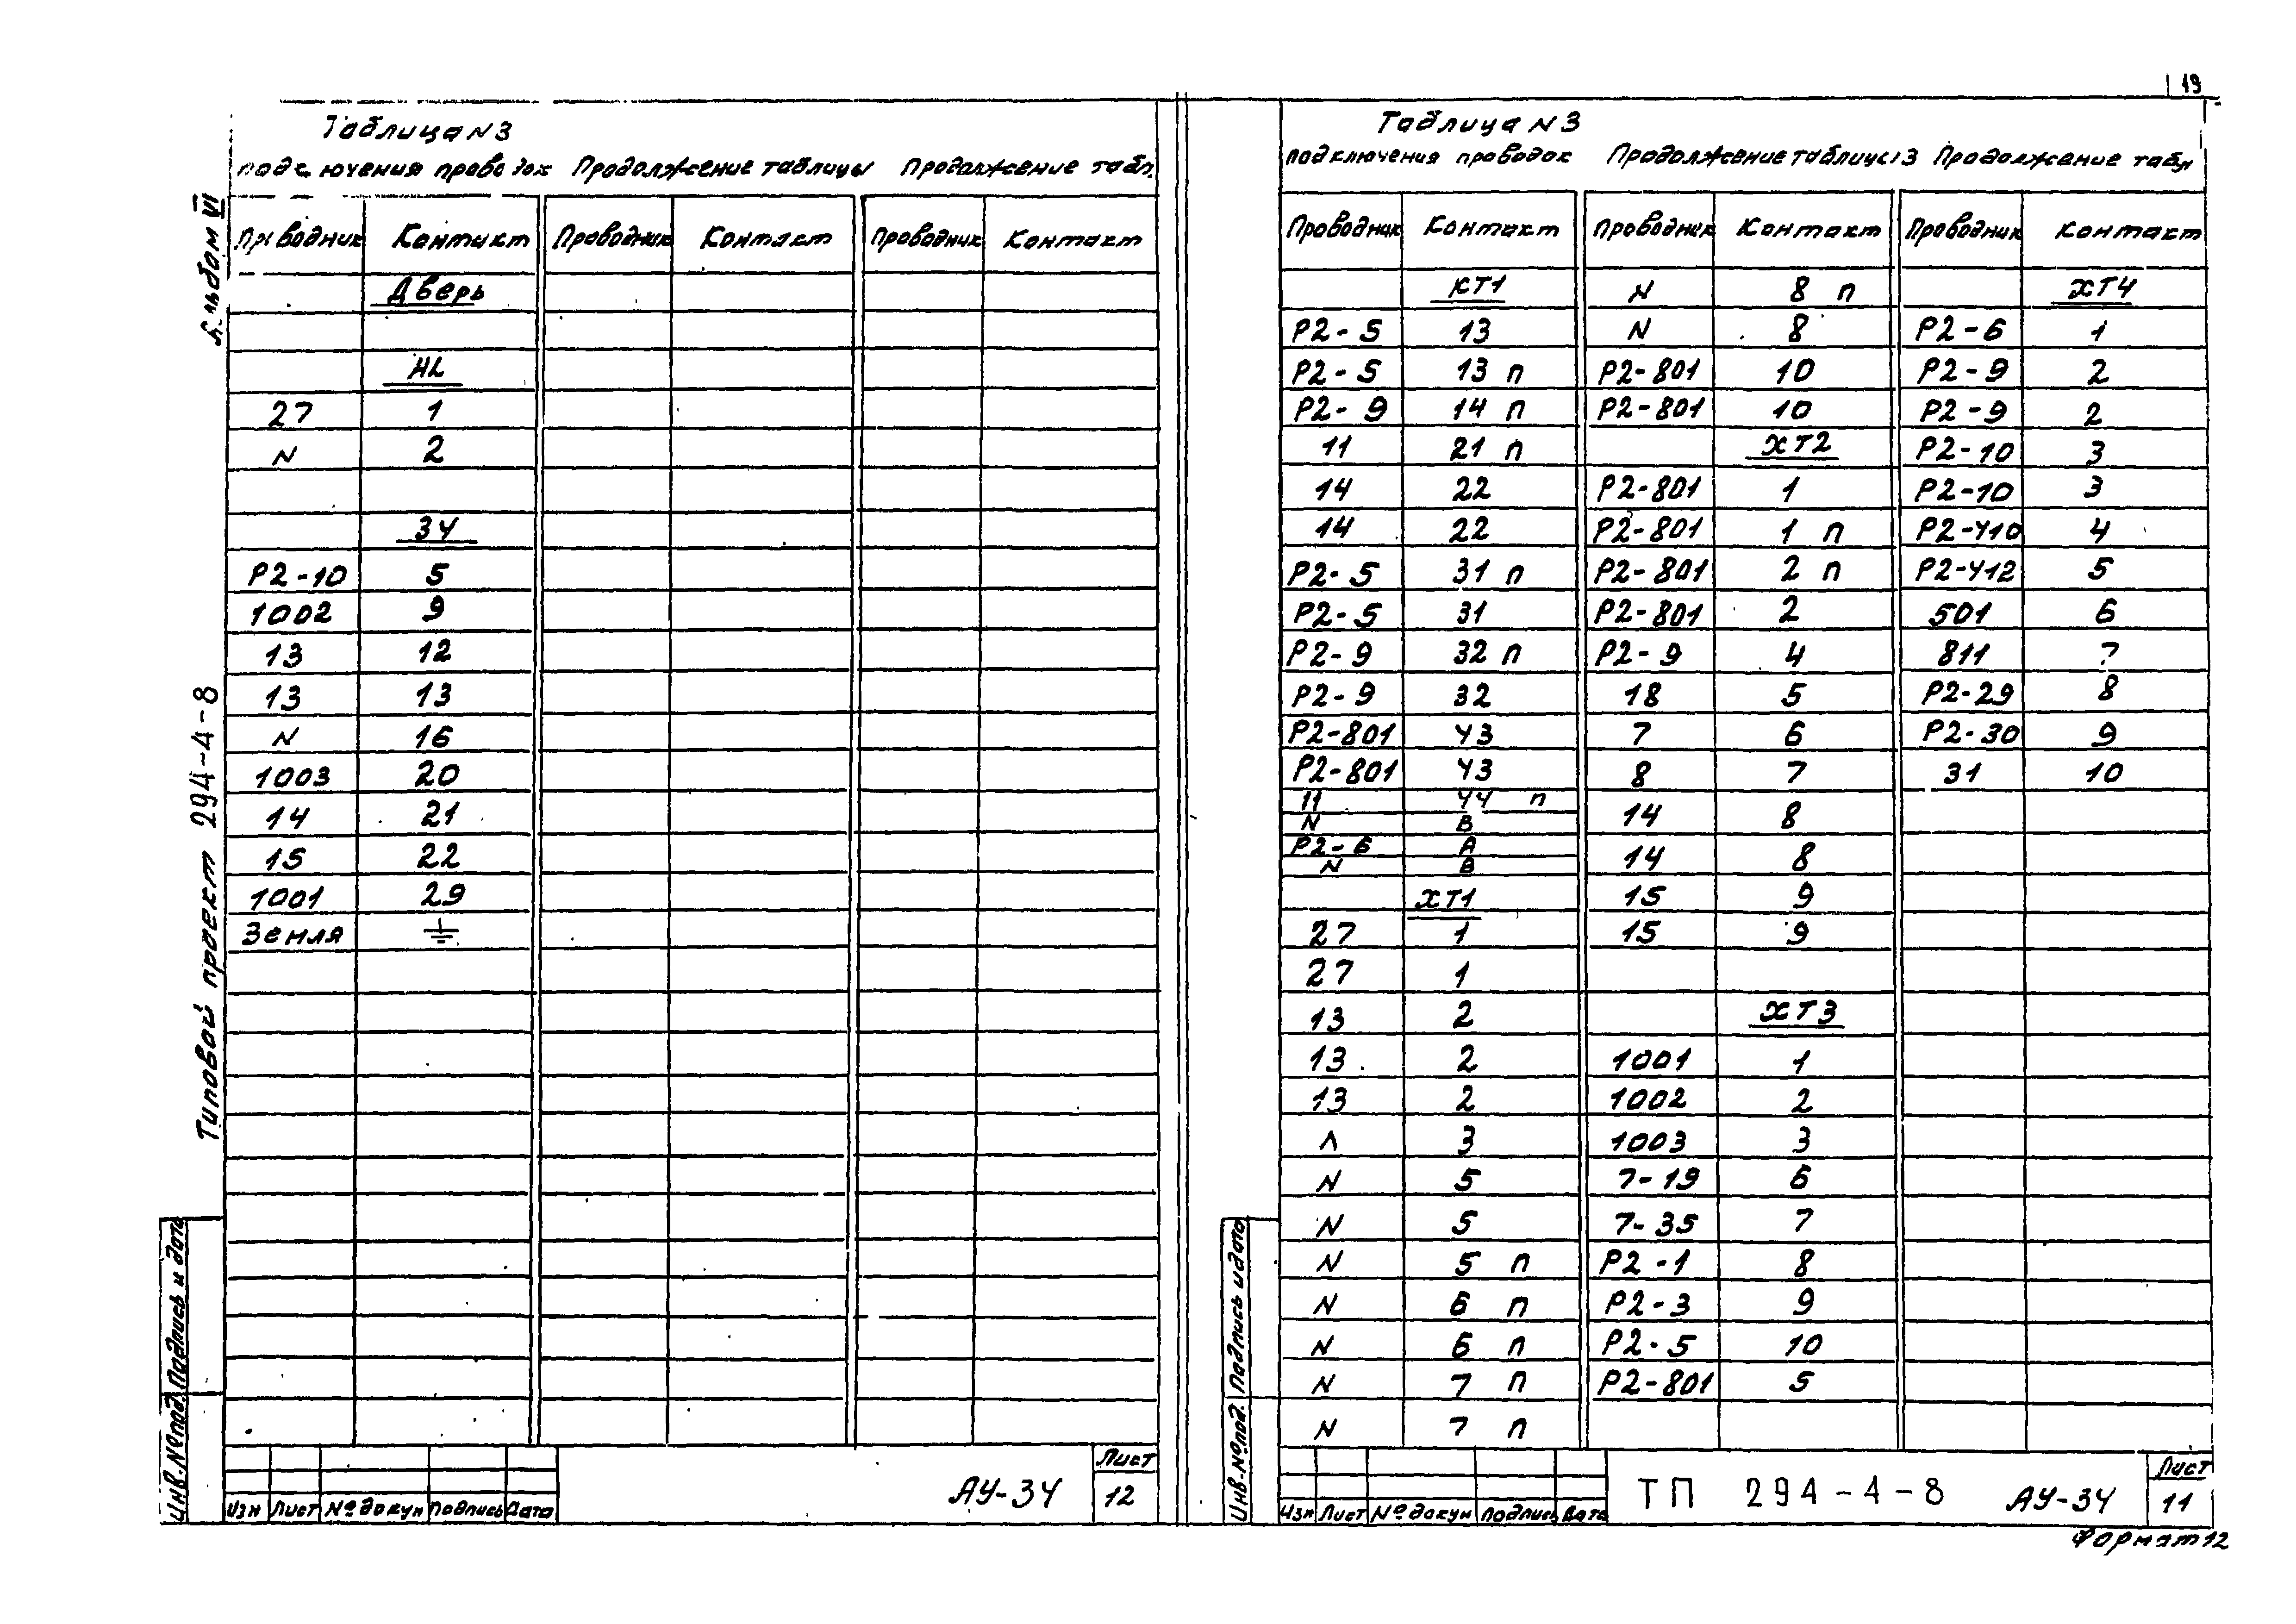 19
Альбом VI
Типовой проект 294-4-8
Таблица N3
подключения проводок Продолжение таблицы Продолжение табл.
Проводник Контакт Проводник Контакт Проводник Контакт
Дверь
HL
27 1
N 2
34
P2-10 5
1002 9
13 12
13 13
N 16
1003 20
14 21
15 22
1001 29
Земля ⏚
Инв.№ подл. Подпись и дата
Изм Лист № докум Подпись Дата
АУ-34
Лист
12
Таблица N3
подключения проводок Продолжение таблицы 3 Продолжение табл
Проводник Контакт Проводник Контакт Проводник Контакт
КТ1 N 8 п ХТ4
P2-5 13 N 8 P2-6 1
P2-5 13 п P2-801 10 P2-9 2
P2-9 14 п P2-801 10 P2-9 2
11 21 п ХТ2 P2-10 3
14 22 P2-801 1 P2-10 3
14 22 P2-801 1 п P2-410 4
P2-5 31 п P2-801 2 п P2-412 5
P2-5 31 P2-801 2 501 6
P2-9 32 п P2-9 4 811 7
P2-9 32 18 5 P2-29 8
P2-801 43 7 6 P2-30 9
P2-801 43 8 7 31 10
11 44 п 14 8
N В
P2-6 А 14 8
N В
ХТ1 15 9
27 1 15 9
27 1
13 2 ХТ3
13 2 1001 1
13 2 1002 2
3 1003 3
N 5 7-19 6
N 5 7-35 7
N 5 п P2-1 8
N 6 п P2-3 9
N 6 п P2-5 10
N 7 п P2-801 5
N 7 п
Инв.№ подл. Подпись и дата
Изм Лист № докум Подпись Дата
ТП 294-4-8 АУ-34
Лист
11
Формат 12